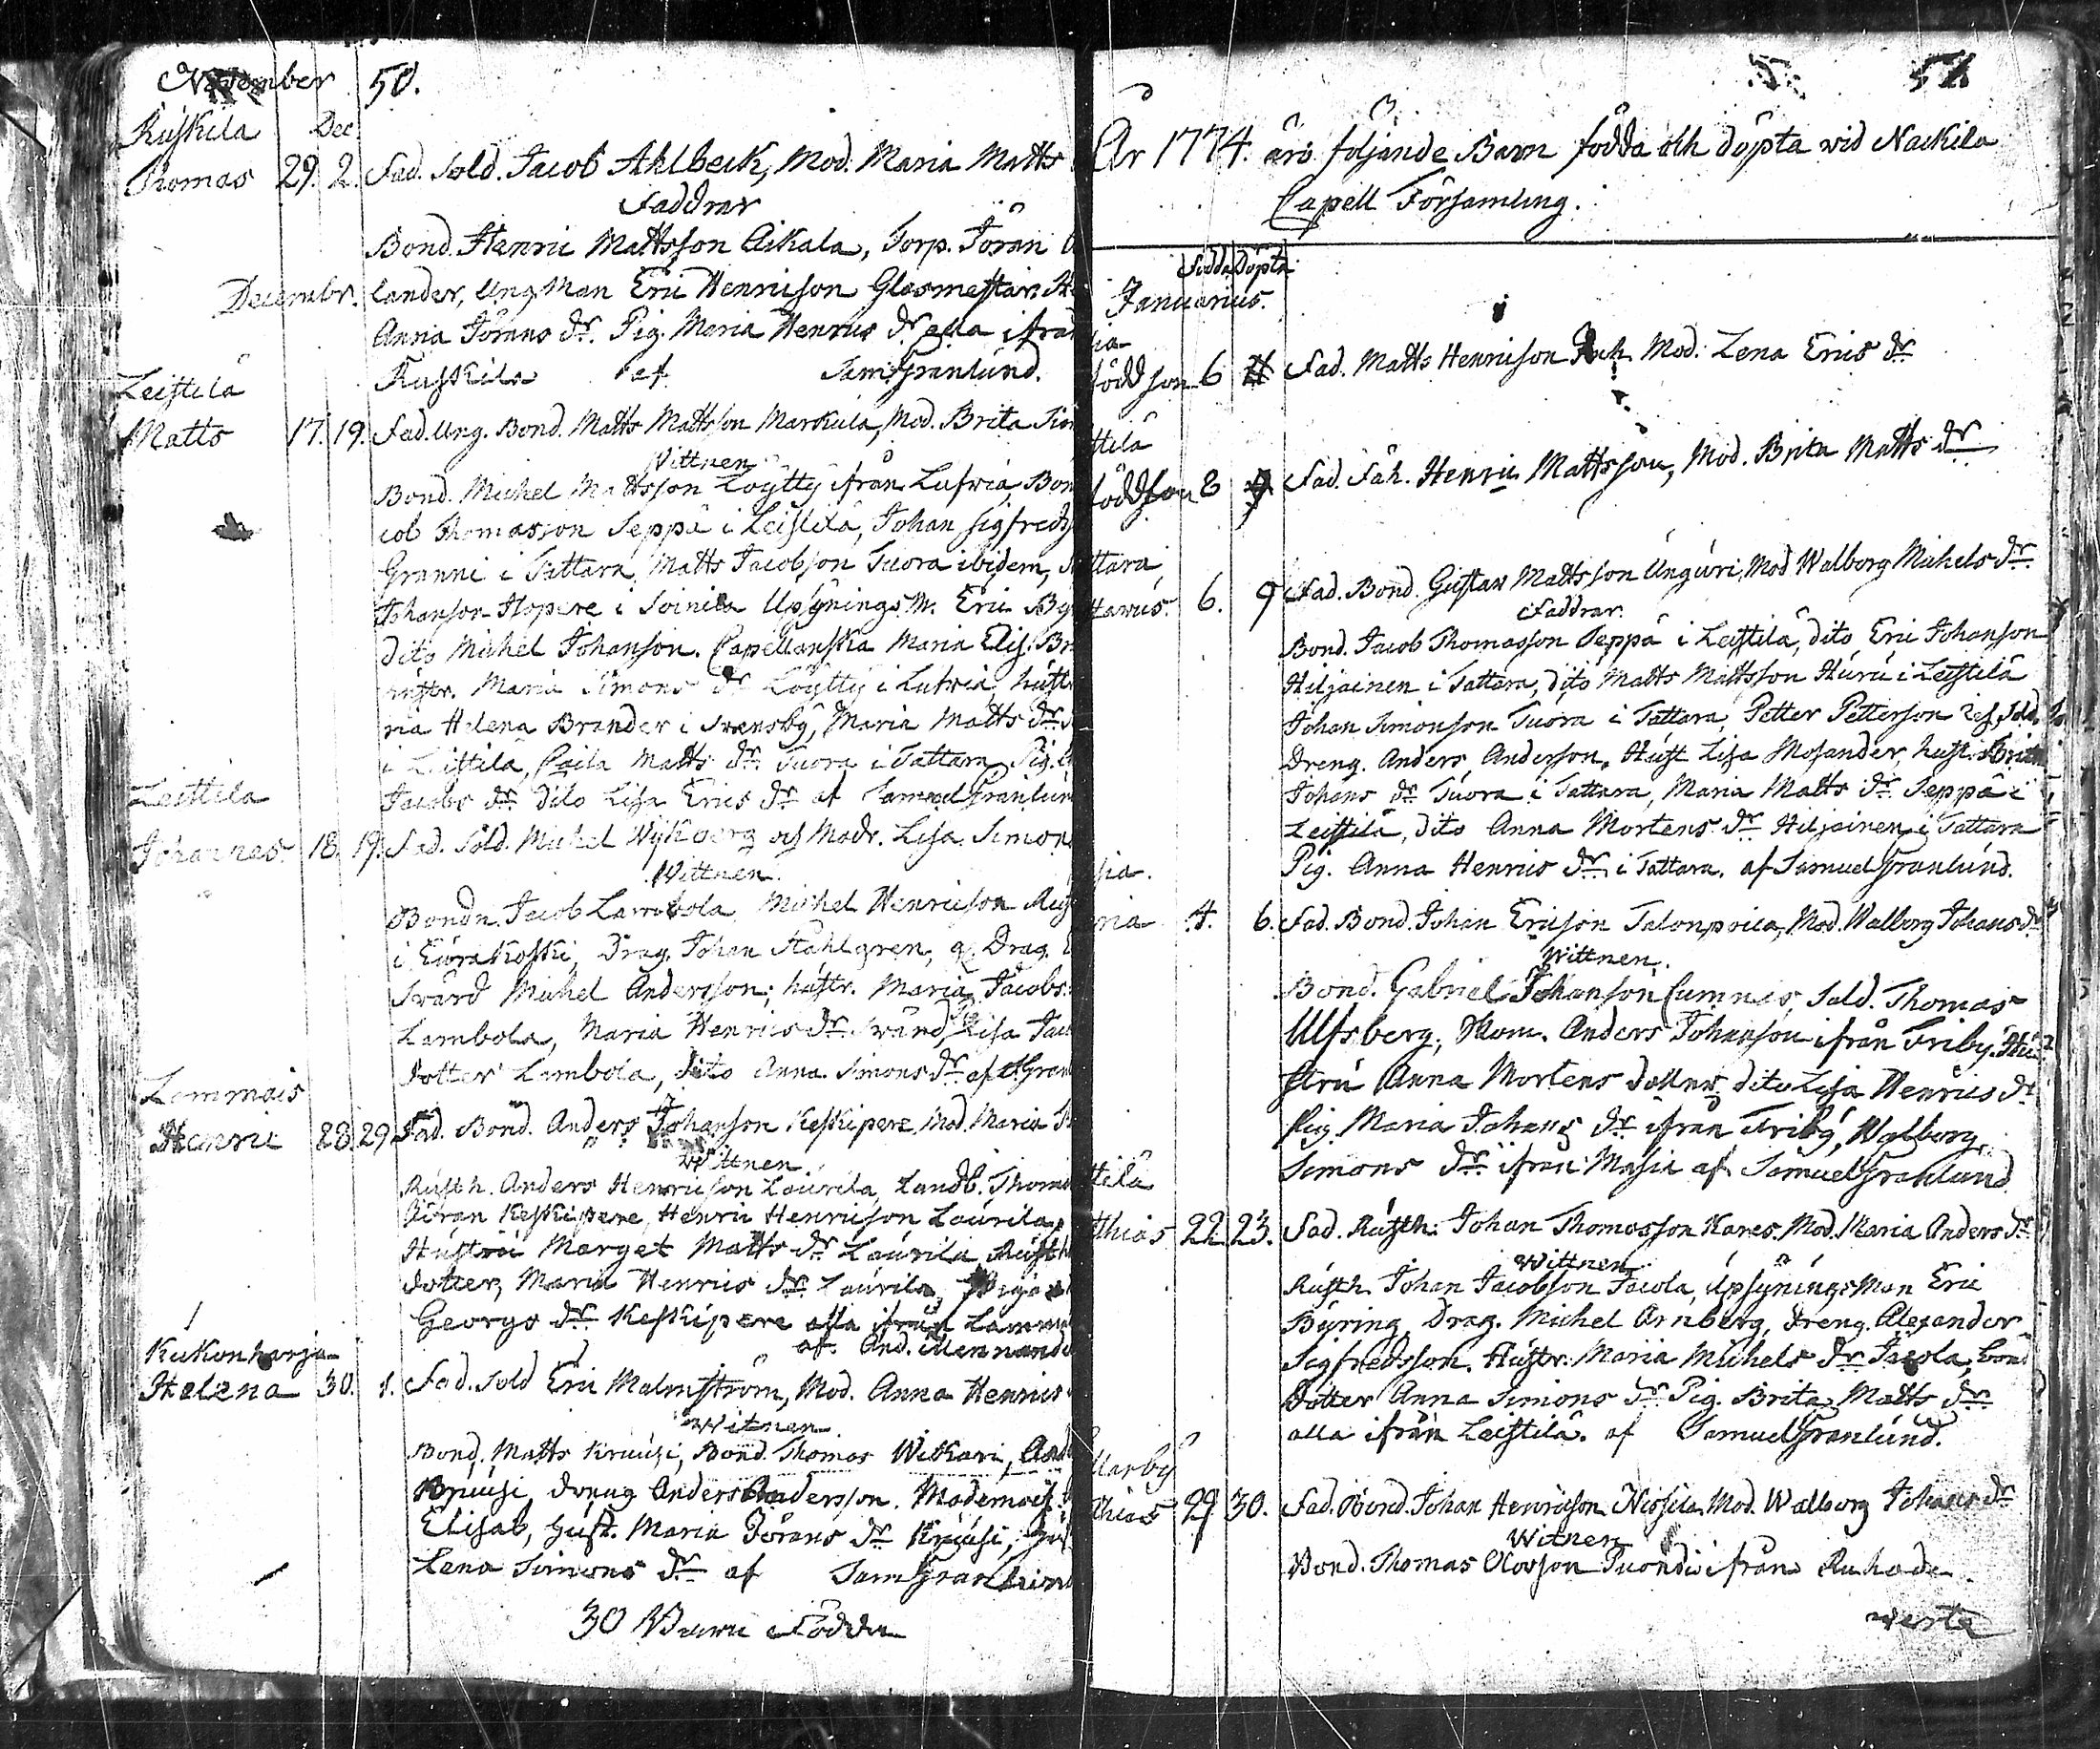 November 50.
Ruskila Dec
Thomas 29. 2. Fad. Sold. Jacob Ahlbeck, Mod. Maria Matts
Faddrar
Bond. Henric Mattsson Aikala, Torp. Jöran
Decembr. lander, Ung. Man Eric Henricson Glasmestar,
Anna Jörans dr. Pig. Maria Henrics dr. alla ifrån
Ruskila af Sam. Granlund.
Leistilä
Matts 17. 19. Fad. Ung. Bond. Matts Mattsson Markula, Mod. Brita Sim
Wittnen
Bond. Michel Mattsson Löytty ifrån Lufwia, Bon
cob Thomasson Seppä i Leistilä, Johan Sigfreds
Granni i Tattara, Matts Jacobson Tuora ibidem,
Johanson Hopere i Soinila Upsynings M. Eric By
dito Michel Johanson. Capellanska Maria Elis. Br
hustr. Maria Simons dr Löytty i Lufwia, hustr
ria Helena Brander i Swensby, Maria Matts dr
i Leistilä, Caila Matts dr. Tuora i Tattara, Pig.
Jacobs dr dito Lisa Erics dr af Samuel Granlun
Leistila
Johannes 18. 19. Fad. Sold. Michel Wykberg och Modr. Lisa Simon
Wittnen
Bondn. Jacob Lambola, Michel Henricson
i Eurakoski, Drag. Johan Stahlgren, Drag.
Swärd Michel Andersson, hustr. Maria Jacobs
Lambola, Maria Henrics dr. Swärd, Lisa Jac
dotter Lambola, dito Anna Simons dr. af S. Gran
Lammais
Henric 28. 29. Fad. Bond. Anders Johanson Keskipere Mod. Maria
Wittnen
Rusth. Anders Henricson Laurila, Landb. Thom
Jöran Keskipere, Henric Henricson Laurila,
Hustru Marget Matts dr Laurila, Rusth
dotter, Maria Henrics dr Laurila, Piga
Georgs dr Keskipere alla ifrån Lamm
af And. Mennande
Kukonharja
Helena 30. 1. Fad. Sold Eric Malmström, Mod. Anna Henrics
Witnen
Bond. Matts Kruusi, Bond. Thomas Witkari,
Bruusi dräng Anders Andersson. Mademois.
Elisab, hust. Maria Jörans dr Kruusi,
Lena Simons dr af Sam Granlun
30 Barn Födda
51
År 1774 äro följande Barn födda och döpta wid Nackila
Capell Församling.
Födda Döpta
Januarius.
ia
född son 6 Fad. Matts Henricson Mod. Lena Erics dr
tilä
född son 8 9 Fad. Henric Mattsson, Mod. Brita Matts dr
ttara,
tavus. 6. 9 Fad. Bond. Gustav Mattsson Unguri, Mod Walborg Michels dr
Faddrar.
Bond. Jacob Thomasson Seppä i Leistilä, dito Eric Johanson
Hiljainen i Tattara, dito Matts Mattsson Huru i Leistilä
Johan Simonson Tuora i Tattara, Petter Petterson Sold.
Dreng. Anders Anderson, Hust Lisa Mosander, hust. Brita
Johans dr Tuora i Tattara, Maria Matts dr Seppä i
Leistilä, dito Anna Mortens dr Hiljainen i Tattara
Pig. Anna Henrics dr i Tattara. af Samuel Granlund.
sia.
ria 4. 6. Fad. Bond. Johan Ericson Talonpoica, Mod. Walborg Johans dr
Wittnen.
Bond. Gabriel Johanson Cumnis, Sold. Thomas
Ulfsberg, Anders Johanson ifrån Friby, Hu
stru Anna Mortens dotter, dito Lisa Henrics dr
Pig. Maria Johans dr ifrån Friby, Walborg
Simons dr ifrån Masia af Samuel Granlund
tilä
thias 22 23. Fad. Rusth. Johan Thomasson Kares, Mod. Maria Anders dr
Wittnen
Rusth. Johan Jacobson Jacola, Upsynings Man Eric
Byring, Drag. Michel Arnberg, dreng. Alexander
Sigfredsson. Hustr. Maria Michels dr Jacola, bond
Dotter Anna Simons dr Pig. Brita Matts dr
alla ifrån Leistilä. af Samuel Granlund.
larby
thias 29 30. Fad. Bond. Johan Henricson Nissila Mod. Walborg Johans dr
Witnen
Bond. Thomas Olovson ifrån
verta